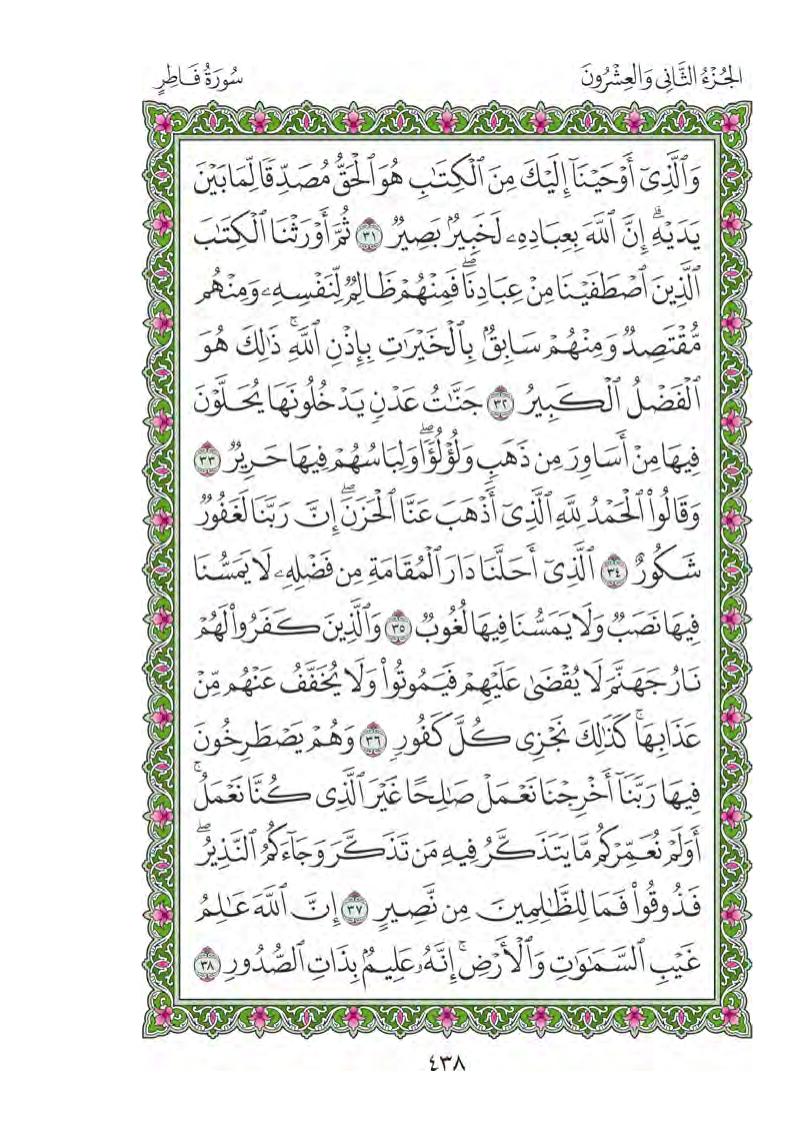 الجُزْءُ الثَّانِي وَالعِشْرُونَ
سُورَةُ فَاطِرٍ
وَٱلَّذِىٓ أَوْحَيْنَآ إِلَيْكَ مِنَ ٱلْكِتَٰبِ هُوَ ٱلْحَقُّ مُصَدِّقًا لِّمَا بَيْنَ
يَدَيْهِۗ إِنَّ ٱللَّهَ بِعِبَادِهِۦ لَخَبِيرٌۢ بَصِيرٌ ٣١ ثُمَّ أَوْرَثْنَا ٱلْكِتَٰبَ
ٱلَّذِينَ ٱصْطَفَيْنَا مِنْ عِبَادِنَاۖ فَمِنْهُمْ ظَالِمٌ لِّنَفْسِهِۦ وَمِنْهُم
مُّقْتَصِدٌ وَمِنْهُمْ سَابِقٌۢ بِٱلْخَيْرَٰتِ بِإِذْنِ ٱللَّهِۚ ذَٰلِكَ هُوَ
ٱلْفَضْلُ ٱلْكَبِيرُ ٣٢ جَنَّٰتُ عَدْنٍ يَدْخُلُونَهَا يُحَلَّوْنَ
فِيهَا مِنْ أَسَاوِرَ مِن ذَهَبٍ وَلُؤْلُؤًاۖ وَلِبَاسُهُمْ فِيهَا حَرِيرٌ ٣٣
وَقَالُوا۟ ٱلْحَمْدُ لِلَّهِ ٱلَّذِىٓ أَذْهَبَ عَنَّا ٱلْحَزَنَۖ إِنَّ رَبَّنَا لَغَفُورٌ
شَكُورٌ ٣٤ ٱلَّذِىٓ أَحَلَّنَا دَارَ ٱلْمُقَامَةِ مِن فَضْلِهِۦ لَا يَمَسُّنَا
فِيهَا نَصَبٌ وَلَا يَمَسُّنَا فِيهَا لُغُوبٌ ٣٥ وَٱلَّذِينَ كَفَرُوا۟ لَهُمْ
نَارُ جَهَنَّمَ لَا يُقْضَىٰ عَلَيْهِمْ فَيَمُوتُوا۟ وَلَا يُخَفَّفُ عَنْهُم مِّنْ
عَذَابِهَاۚ كَذَٰلِكَ نَجْزِى كُلَّ كَفُورٍ ٣٦ وَهُمْ يَصْطَرِخُونَ
فِيهَا رَبَّنَآ أَخْرِجْنَا نَعْمَلْ صَٰلِحًا غَيْرَ ٱلَّذِى كُنَّا نَعْمَلُۚ
أَوَلَمْ نُعَمِّرْكُم مَّا يَتَذَكَّرُ فِيهِ مَن تَذَكَّرَ وَجَآءَكُمُ ٱلنَّذِيرُۖ
فَذُوقُوا۟ فَمَا لِلظَّٰلِمِينَ مِن نَّصِيرٍ ٣٧ إِنَّ ٱللَّهَ عَٰلِمُ
غَيْبِ ٱلسَّمَٰوَٰتِ وَٱلْأَرْضِۚ إِنَّهُۥ عَلِيمٌۢ بِذَاتِ ٱلصُّدُورِ ٣٨
٤٣٨